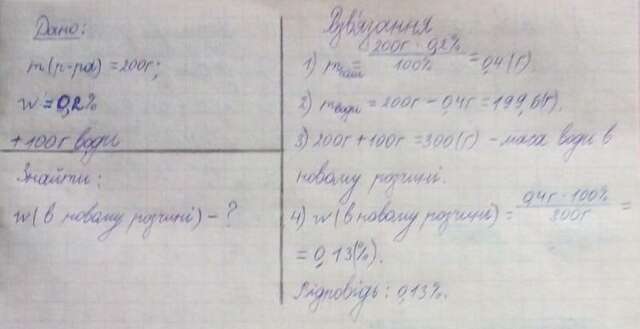 Дано:
m(р-ра) = 200г;
w = 0,2%
+ 100г води
Знайти:
w(в новому розчині) - ?
Розв'язання
1) m = 200г · 0,2% / 100% = 0,4(г).
2) mводи = 200г - 0,4г = 199,6(г).
3) 200г + 100г = 300(г) - маса води в
новому розчині.
4) w(в новому розчині) = 0,4г · 100% / 300г =
= 0,13(%).
Відповідь: 0,13%.